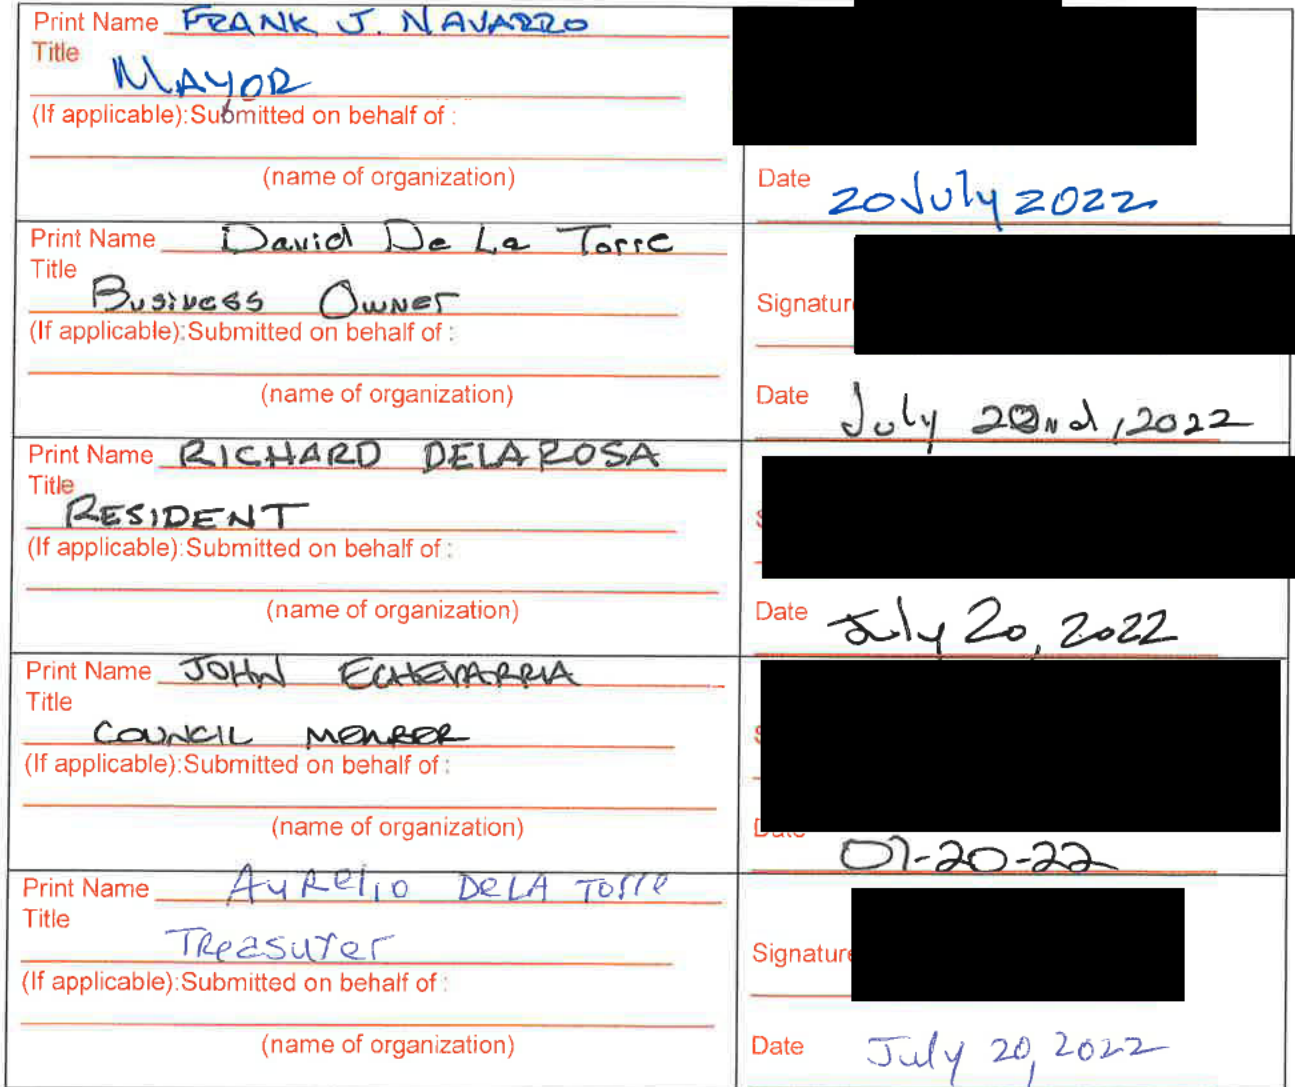 Print Name FRANK J. NAVARRO
Title
MAYOR
(If applicable):Submitted on behalf of :
(name of organization)
Date 20 July 2022
Print Name David De La Torre
Title
Business Owner
(If applicable):Submitted on behalf of :
(name of organization)
Signature
Date July 20nd, 2022
Print Name RICHARD DELAROSA
Title
RESIDENT
(If applicable):Submitted on behalf of :
(name of organization)
Date July 20, 2022
Print Name JOHN ECHEVARRIA
Title
COUNCIL MEMBER
(If applicable):Submitted on behalf of :
(name of organization)
Date
07-20-22
Print Name AURELIO DELA TORRE
Title
Treasurer
(If applicable):Submitted on behalf of :
(name of organization)
Signature
Date July 20, 2022